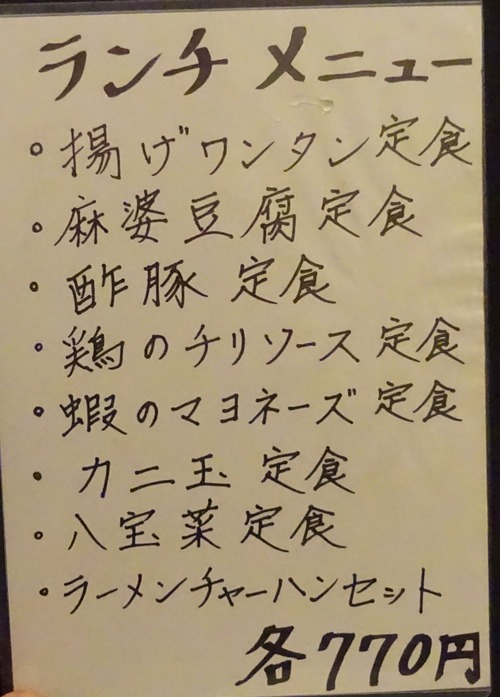 ランチ メニュー
・揚げワンタン定食
・麻婆豆腐定食
・酢豚 定食
・鶏のチリソース 定食
・蝦のマヨネーズ 定食
・カニ玉 定食
・八宝菜 定食
・ラーメンチャーハンセット
各770円